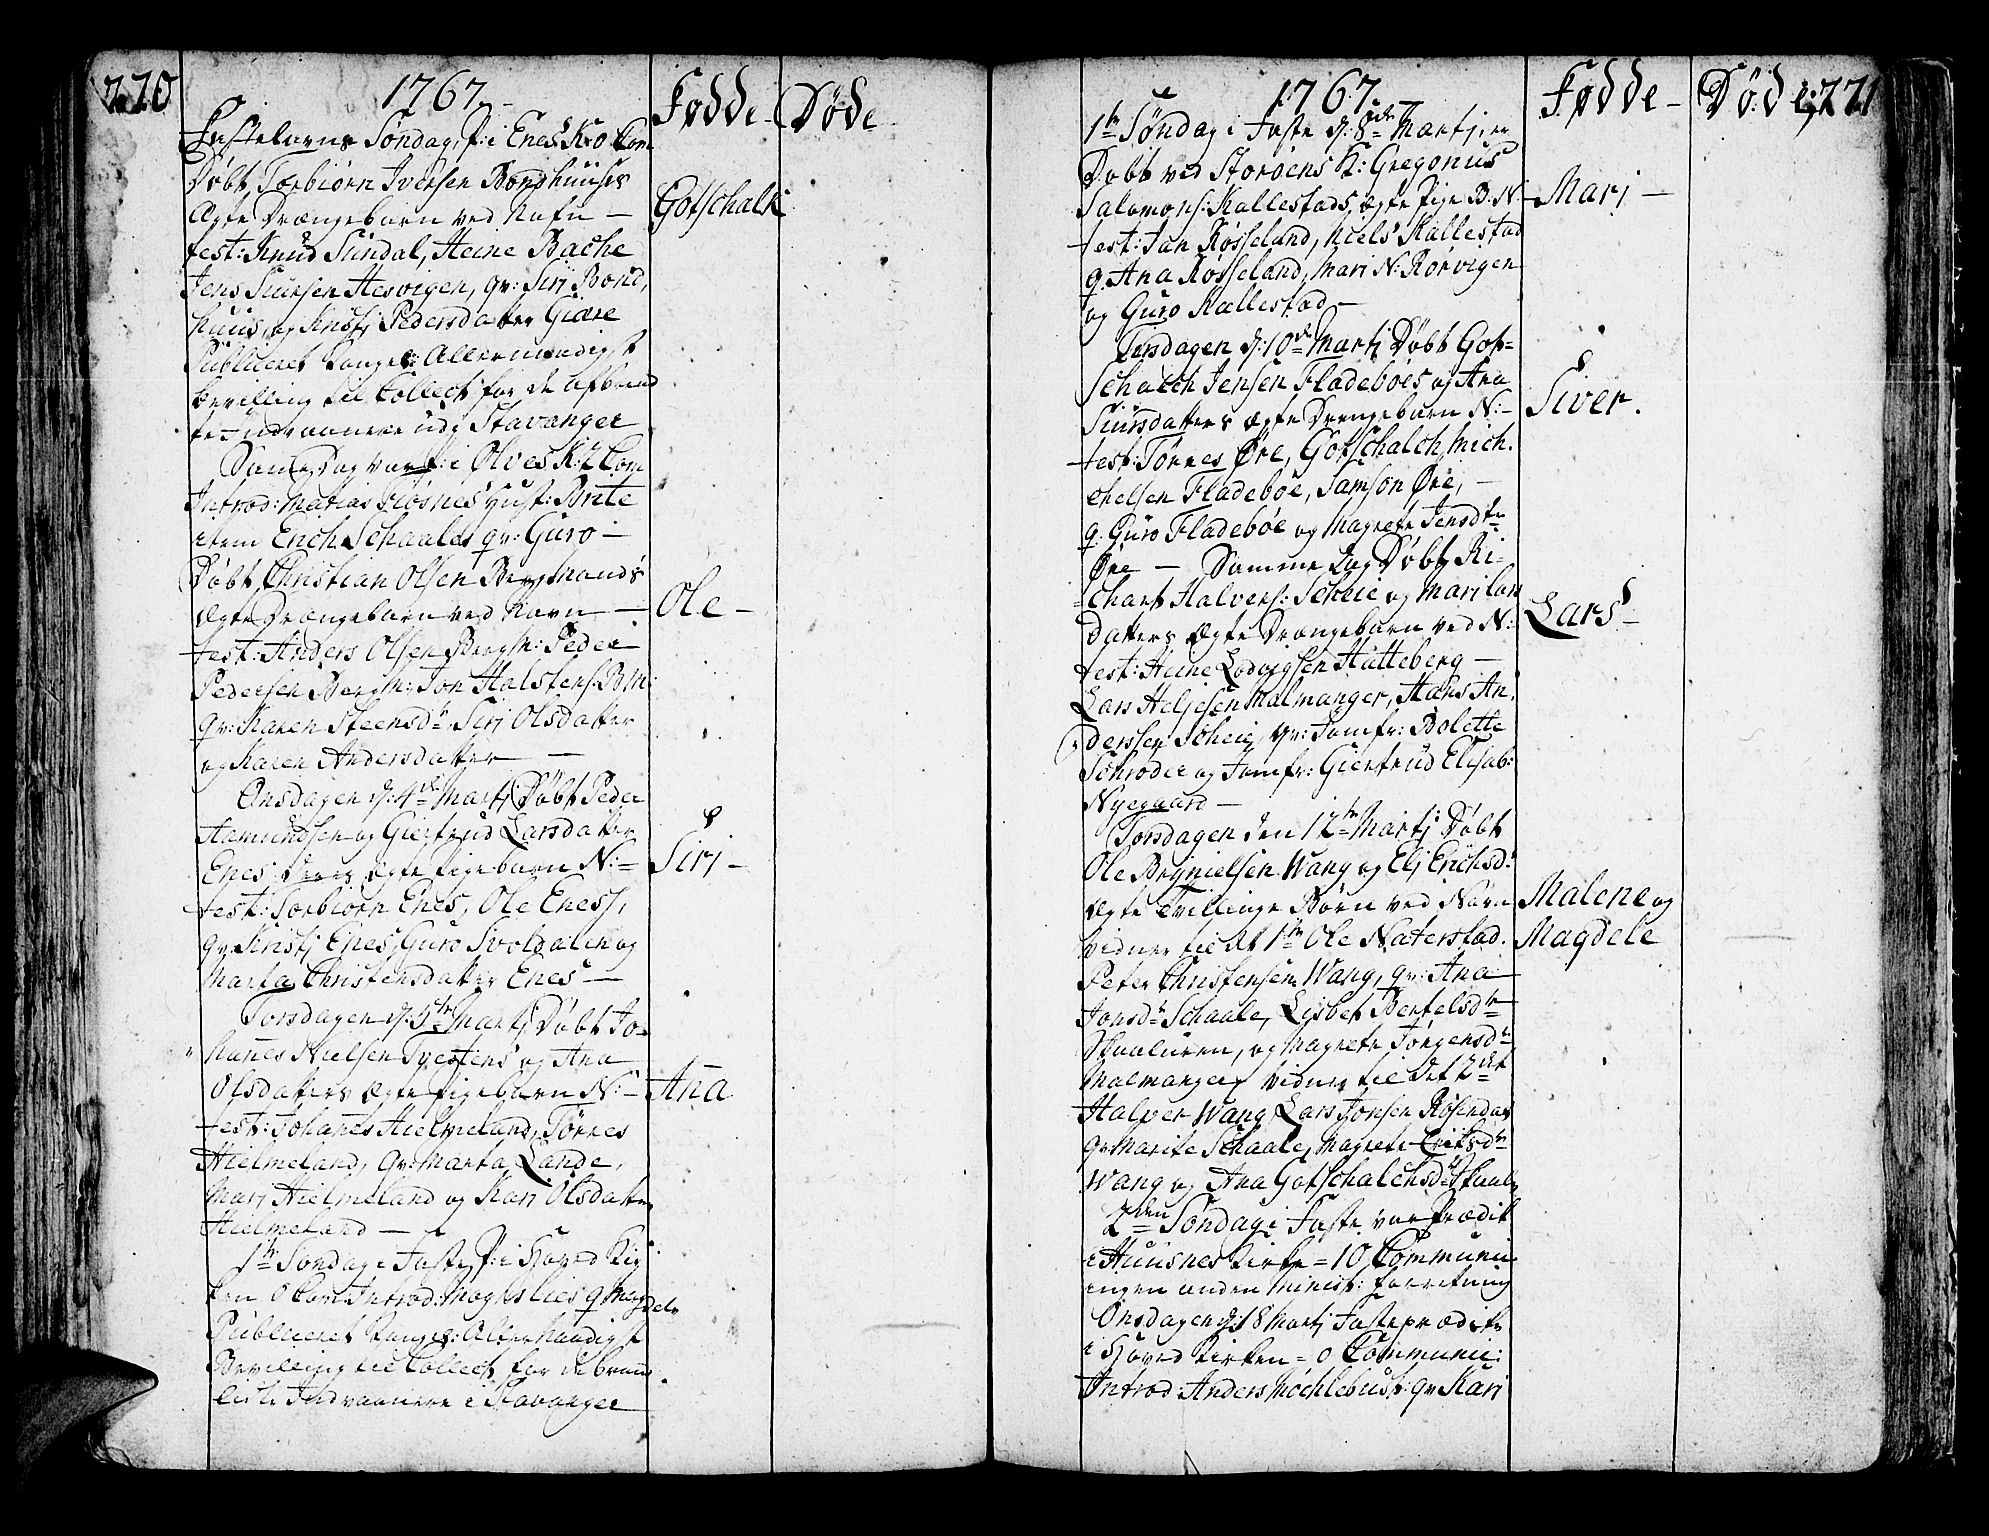 220
1767
Fødde
Døde
Fastelavns Søndag, p: i Enes K: 0 Com
Døbt Torbiørn Iversen Bondhuuses
Ægte Drængebarn ved Nafn —
Gotschalk
test: Knud Sundal, Heine Bache
Jens Siursen Hesvigen, qv: Siri Bond,
huus, og Kristj Pedersdatter Giære
Publiceret Konget: Allernaadigst
bevilling til Collect for de afbrend
te Indvaanere udj Stavanger
Same Dag var p: i Ølves K: 2 Com
Introd: Matias Røsnes hust: Brite
item Erich Schaalds qv: Guro —
Døbt Christian Olsen Bergmands
Ægte Drængebarn ved Navn —
Ole —
test: Anders Olsen Bergm: Peder
Pedersen Bergm: Jon Halstens: B:M:
qv: Karen Steensdr Siri Olsdatter
og Karen Andersdatter —
Onsdagen d: 4de Martj Døbt Peder
Aamundsen og Giertrud Larsdatter
Enes Deres Ægte Pigebarn N: —
Siri —
test: Torbiørn Enes, Ole Eness,
qv: Kristj Enes, Guro Svoldalen og
Marta Christensdatter Enes —
Torsdagen d: 5te Martj Døbt Jo-
hanes Nielsen Tvestens og Ana
Olsdatters Ægte Pigebarn N: —
Ana
test: Johanes Hielmeland, Tørres
Hielmeland, qv: Marta Lande,
Marj Hielmeland og Kari Olsdatter
Hielmeland —
1te Søndag i Faste, P: i Hoved Kir
ken 0 Com: Introd: Mogns Lies q Magdele
Publiceret Konget: Allernaadigst
Bevilling til Collect for de brand
lidte Indvaanere i Stavanger
1767
Fødde —
Døde
221
1te Søndag i Faste d: 8de Martj, er
Døbt ved Storøens K: Gregorius
Salomons: Kallestads ægte Pige B: N:
Marj —
test: Jan Røsseland, Niels Kallestad
q. Ana Røsseland, Mari N: Rørvigen
og Guro Kallestad —
Tirsdagen d: 10de Martj Døbt Got-
schalch Jensen Fladeboes og Ana
Siursdatters Ægte Drengebarn N: —
Siver.
test: Tørres Øre, Gotschalch Mich-
chelsen Fladebøe, Samson Øre, —
q. Guro Fladebøe og Magrete Jensdtr
Øre — Samme Dag Døbt Ri-
chart Halvers: Scheie og Mari Lar
datters Ægte Drængebarn ved N:
Lars —
test: Heine Lodvigsen Hatteberg —
Lars Heljesen Malmanger, Hans An,
derssen Scheie, qv: Jomfr: Bolette
Schrøder og Jomfr: Giertrud Elisab:
Nyegaard —
Torsdagen den 12te Martj Døbt
Ole Brynielsen Wang og Elj Erichsdr
Ægte Tvillinge Børn ved Navn
Malene og
Magdele
vidner til det 1te Ole Naterstad.
Peter Christensen Wang, qv: Ana
Jonsdr Schaale, Lisbet Bertelsdtr
Skaaluren, og Magrete Jørgensdr
Malmanger vidner til det 2det
Halver Wang, Lars Jonsen Rosendal
qv: Marite Schaale, Magrete Eriksdtr
Wang og Ana Gotschalchsdtr Skaale
2den Søndag i Faste var prædik
i Huusnes Kirke = 10 Communi
ingen anden minist: forretning
Onsdagen d 18 Martj Fasteprædiken
i Hoved Kirken = 0 Communi:
Introd: Anders Møchlebust: qv Kari